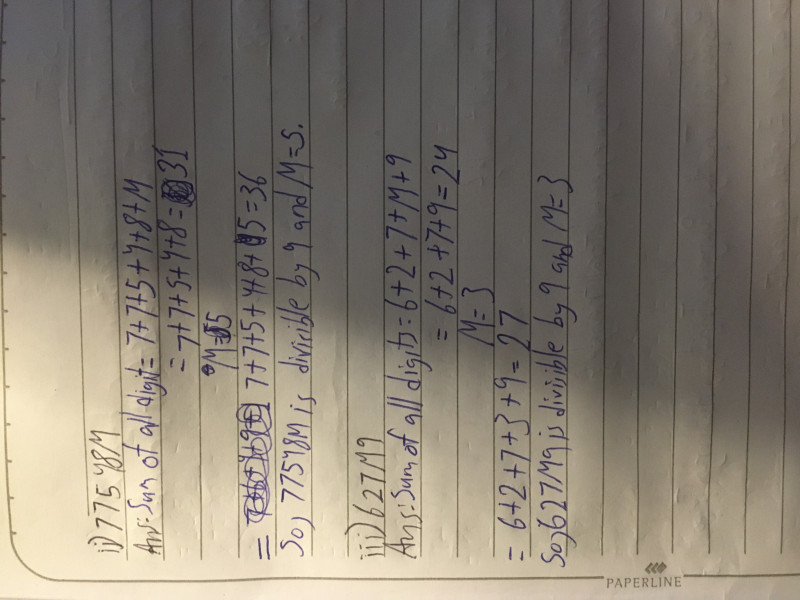 ii) 77548M
Ans: Sum of all digit = 7+7+5+4+8+M
= 7+7+5+4+8 = 31
M=5
= 7+7+5+4+8+5=36
So, 77548M is divisible by 9 and M=5.
iii) 627M9
Ans: Sum of all digits = 6+2+7+M+9
= 6+2+7+9=24
M=3
= 6+2+7+3+9=27
So, 627M9 is divisible by 9 and M=3
PAPERLINE